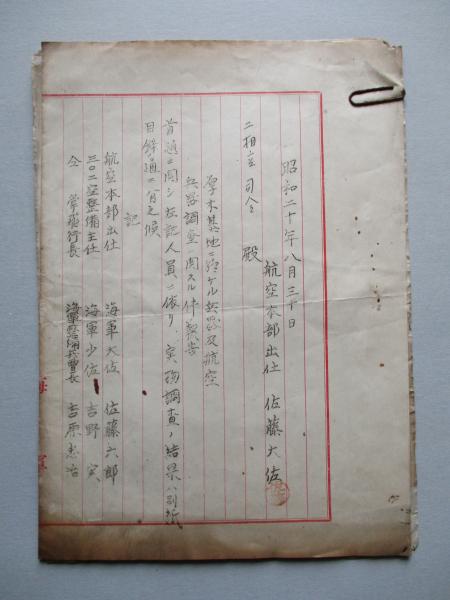 昭和二十年八月三十日
航空本部出仕 佐藤大佐
二相空司令 殿
厚木基地ニ於ケル兵器及航空
兵器調査ニ関スル件報告
首題ニ関シ左記人員ニ依リ実物調査ノ結果ハ別紙
目録ノ通ニ有之候
記
航空本部出仕 海軍大佐 佐藤六郎
三〇二空整備主任 海軍少佐 吉野 実
仝 掌飛行長 吉原
海軍